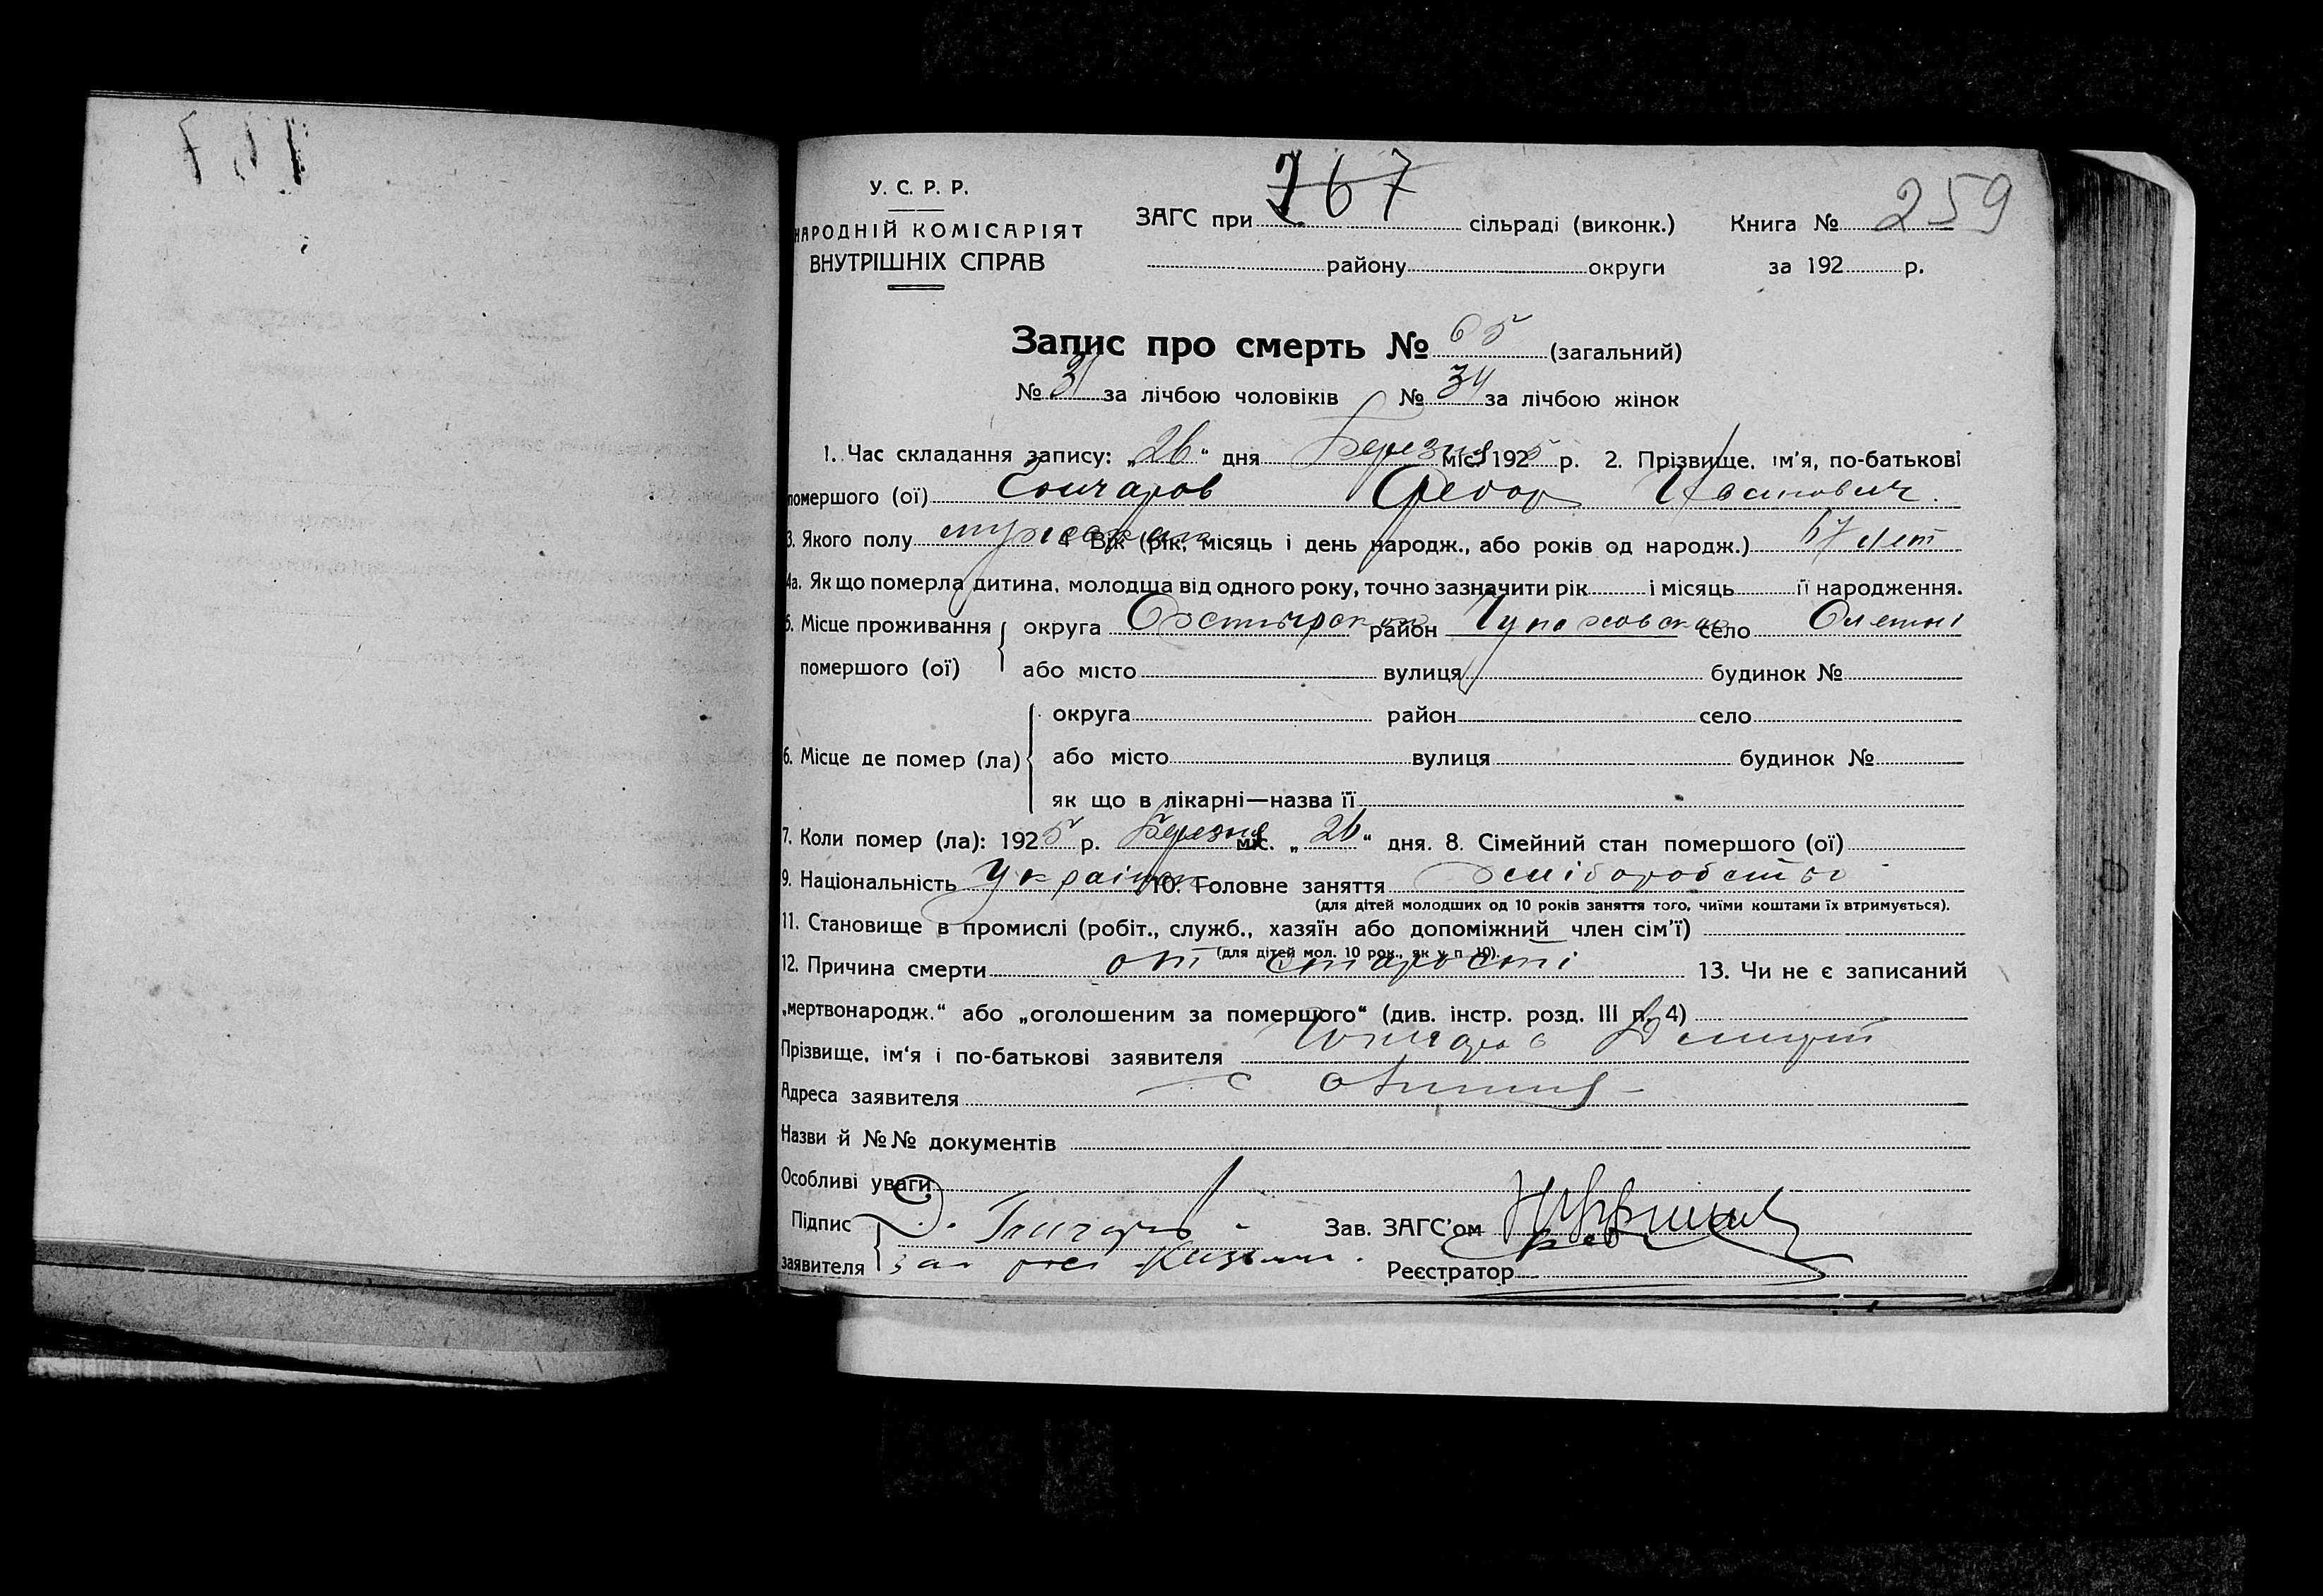 У. С. Р. Р.
НАРОДНІЙ КОМІСАРІЯТ
ВНУТРІШНІХ СПРАВ
767
ЗАГС при сільраді (виконк.) Книга № 259
району округи за 192 р.
Запис про смерть № 65 (загальний)
№ 31 за лічбою чоловіків № 34 за лічбою жінок
1. Час складання запису: „26“ дня Березня міс. 1925 р. 2. Прізвище, ім'я, по-батькові
помершого (ої) Гончаров Федор Иванович.
3. Якого полу 4 Вік (рік, місяць і день народж., або років од народж.) 67 лет
4а. Як що померла дитина, молодща від одного року, точно зазначити рік і місяць її народження.
5. Місце проживання округа район село
помершого (ої) або місто вулиця будинок №
округа район село
6. Місце де помер (ла) або місто вулиця будинок №
як що в лікарні—назва її
7. Коли помер (ла): 1925 р. Березня міс. „26“ дня. 8. Сімейний стан помершого (ої)
9. Національність 10. Головне заняття
(для дітей молодших од 10 років заняття того, чиїми коштами їх втримується).
11. Становище в промислі (робіт., служб., хазяїн або допоміжний член сім'ї)
(для дітей мол. 10 рок., як у п 10).
12. Причина смерти от старості 13. Чи не є записаний
„мертвонародж.“ або „оголошеним за помершого“ (див. інстр. розд. III п. 4)
Прізвище, ім'я і по-батькові заявителя Гончаров
Адреса заявителя с
Назви й №№ документів
Особливі уваги
Підпис Гончаров Зав. ЗАГС'ом
заявителя Реєстратор